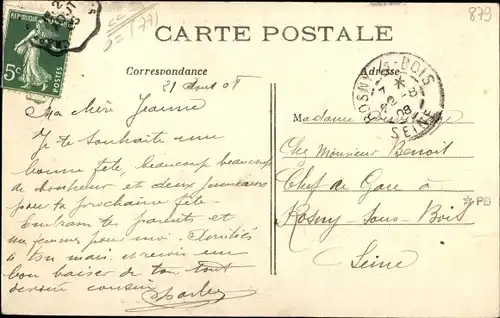 879
CARTE POSTALE
Correspondance
Adresse
21 Aout 08
Ma chère Jeanne
Je te souhaite une
bonne fête, beaucoup beaucoup
de bonheur et deux
pour ta prochaine fête
Embrasse tes parents et
pour moi. Amitiés
à ton mari. et reçois un
bon baiser de ton tout
dévoué cousin
Charles
Madame
Chez Monsieur Benoit
Chef de Gare à
Rosny-sous-Bois
Seine
ROSNY-S-BOIS
22 -8
08
SEINE
5c
POSTES
PD